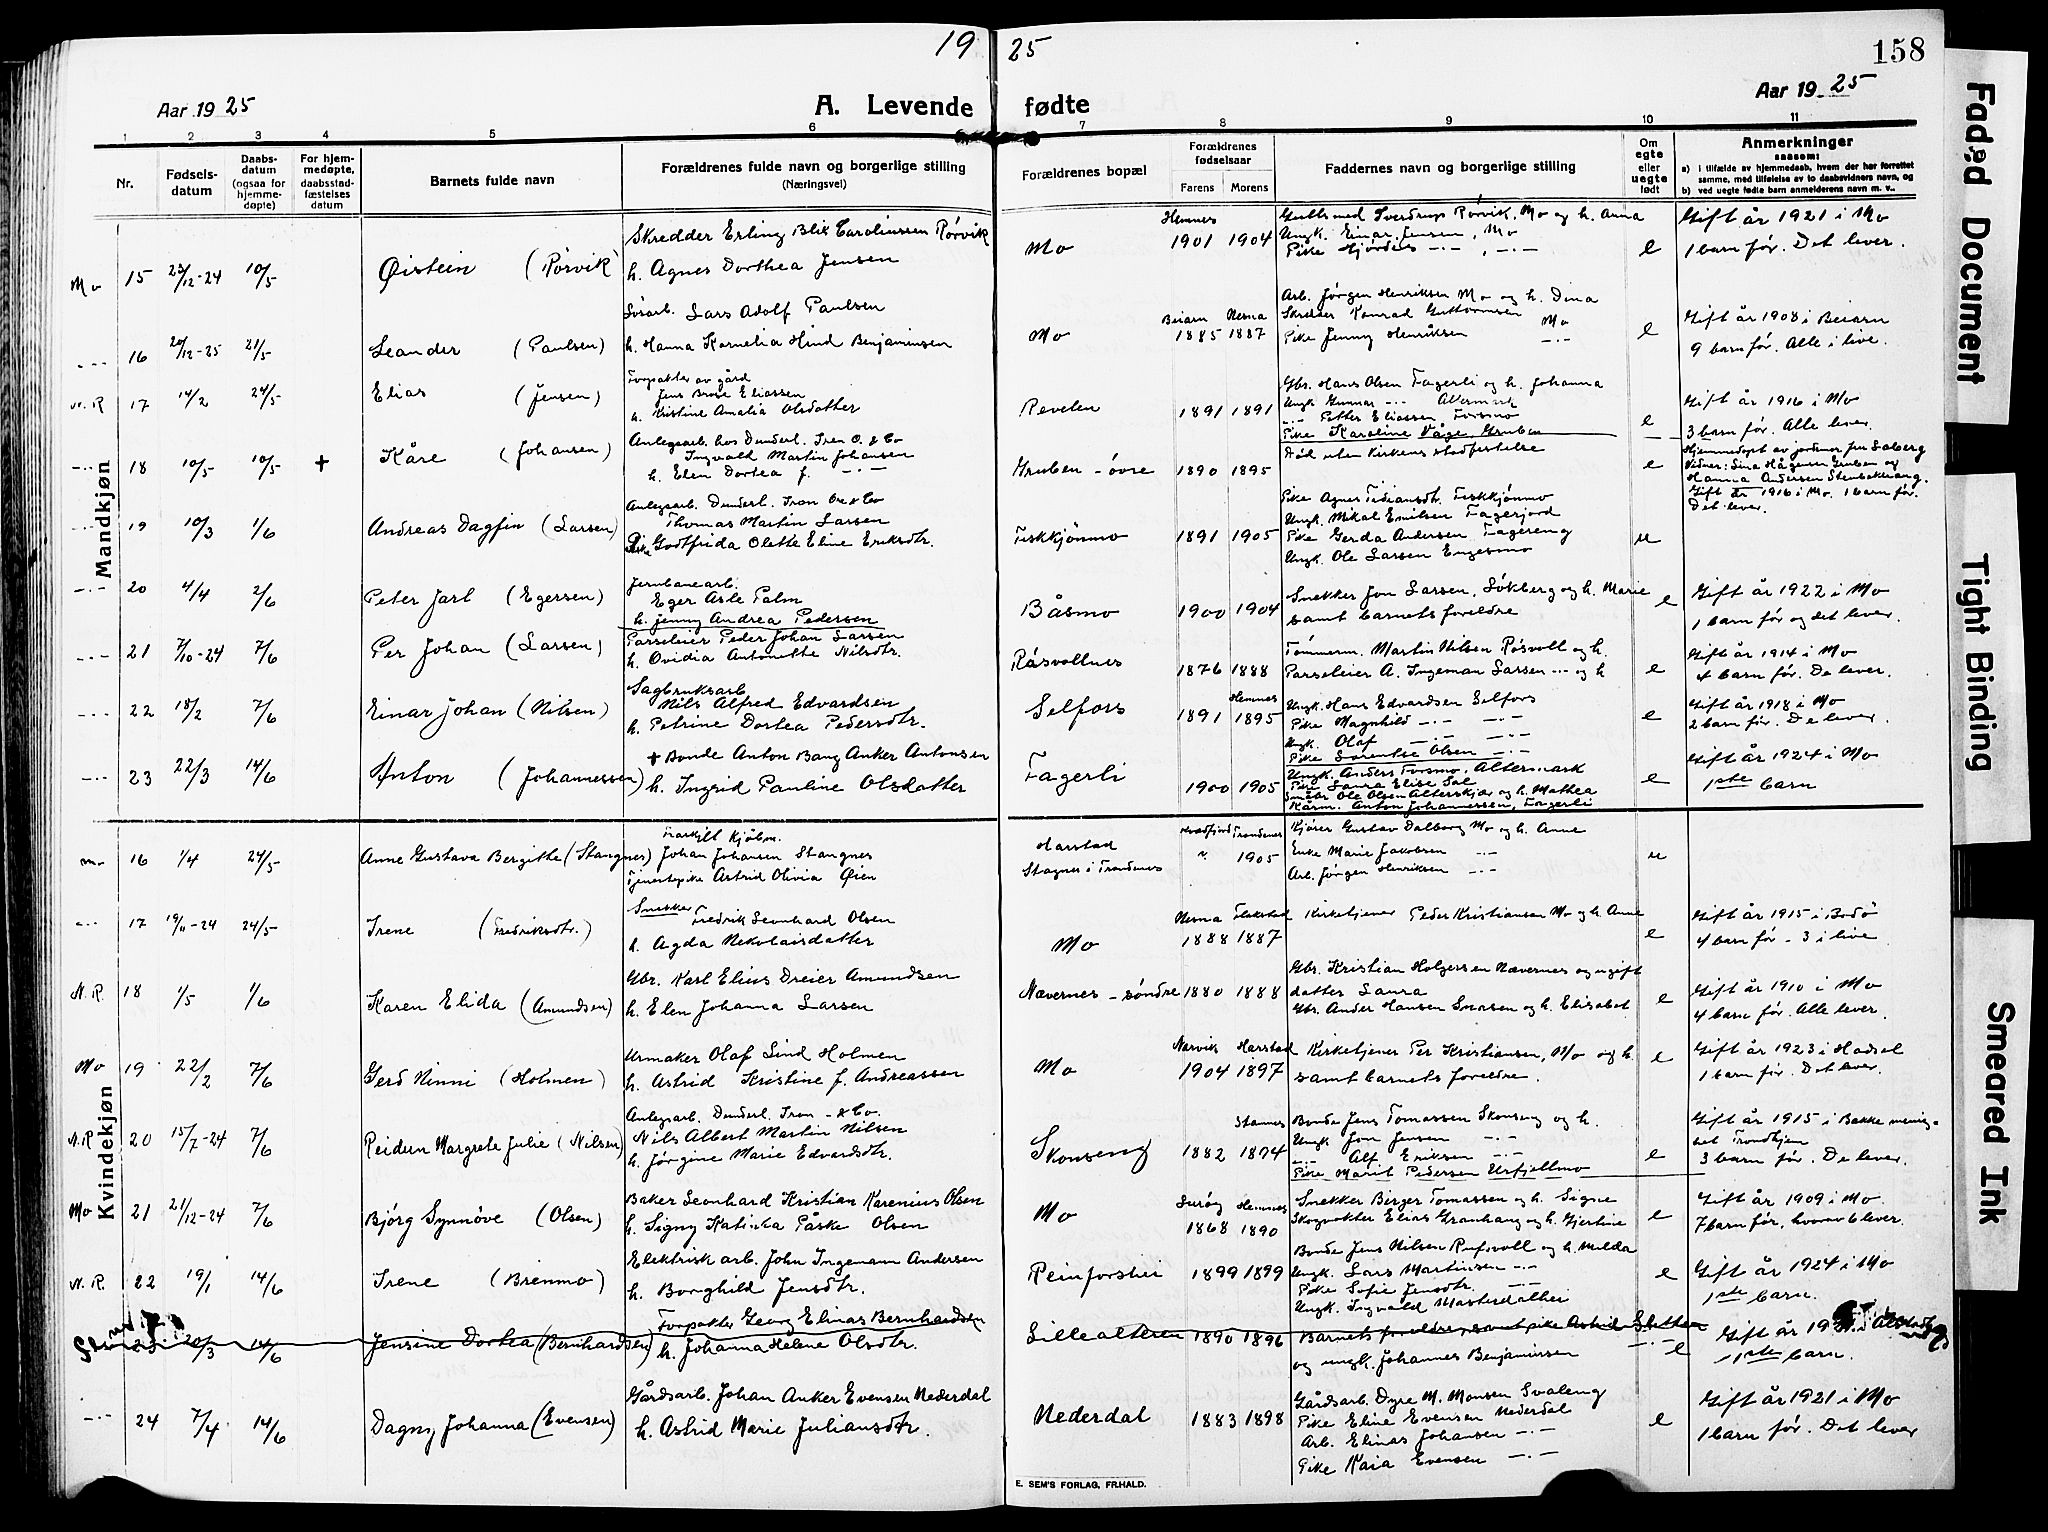 19 25
158
Aar 1925
A. Levende fødte
Aar 1925
1 2 3 4 5 6 7 8 9 10 11
Nr.
Fødsels-
datum
Daabs-
datum
(ogsaa for
hjemme-
døpte)
For hjem-
medøpte,
daabsstad-
fæstelses
datum
Barnets fulde navn
Forældrenes fulde navn og borgerlige stilling
(Næringsvei)
Forældrenes bopæl
Forældrenes
fødselsaar
Farens Morens
Faddernes navn og borgerlige stilling
Om
egte
eller
uegte
født
Anmerkninger
saasom:
a) i tilfælde av hjemmedaab, hvem der har forrettet
samme, med tilføielse av to daabsvidners navn, og
b) ved uegte fødte barn anmelderens navn m. v..
Mandkjøn
Mo 15 23/12-24 10/5 Øistein (Rørvik)
Skredder Erling Blix Carolinssen Rørvik
h. Agnes Dorthea Jensen
Mo
Hemnes
1901 1904
Gullsmed Sverdrup Rørvik, Mo og h. Anna
Ungk. Einar Jensen, Mo
Pike Hjørdis -"-, -"-
e
Gift år 1921 i Mo
1 barn før. Det lever.
-"- 16 20/12-25 21/5 Leander (Paulsen)
Lars Adolf Paulsen
h. Hanna Kornelia Hind Benjaminsen
Mo
Beiarn Nesna
1885 1887
Arb. Jørgen Henriksen Mo og h. Dina
Skredder Konrad Guttormsen Mo
Pike Jenny Henriksen -"-
e
Gift år 1908 i Beiarn
9 barn før. Alle i live.
N. R 17 14/2 24/5 Elias (Jensen)
Forpakter av gård
Jens Brose Eliassen
h. Kristine Amalia Olsdatter
Revelen
1891 1891
Gbr. Hans Olsen Fagerli og h. Johanna
Ungk. Gunnar -"- Altermark
-"- Petter Eliassen Forsmo
Pike Karoline Våge, Gruben
e
Gift år 1916 i Mo
3 barn før. Alle lever.
-"- 18 10/5 10/5 + Kåre (Johansen)
Anlegsarb. hos Dunderl. Iron O. & Co
Ingvald Martin Johansen
h. Elen Dortea f. -"-
Gruben - øvre
1890 1895
Død uten kirkens stadfestelse
e
Hjemmedøpt av jordmor fru Soberg
Vidner: Lina Hågensen Gruben og
Hanna Andersen Stenbekkvang.
Gift år 1916 i Mo. 1 barn før.
Det lever.
-"- 19 10/3 1/6 Andreas Dagfin (Larsen)
Anlegsarb. Dunderl. Iron Ore & Co
Thomas Martin Larsen
Pike Godtfrida Olette Eline Eriksdtr.
Fiskkjønmo
1891 1905
Pike Agnes Fiskkjønmo
Ungk. Mikal Emilsen Fagerjord
Pike Gerda Andersen Fagereng
Ungk. Ole Larsen Engesmo
u
-"- 20 4/4 2/6 Peter Jarl (Egersen)
Jernbanearb.
Eger Asle Palm
h. Jenny Andrea Pedersen
Båsmo
1900 1904
Snekker Jon Larsen, Søkberg og h. Marie
samt barnets foreldre
e
Gift år 1922 i Mo
1 barn før og det lever.
-"- 21 7/10-24 7/6 Per Johan (Larsen)
Parseleier Peder Johan Larsen
h. Ovidia Antonette Nilsdtr.
Råsvollnes
1876 1888
Tømmerm. Martin Nilsen Røsvoll og h.
Parseleier A. Ingeman Larsen -"- og h
e
Gift år 1914 i Mo
4 barn før. De lever.
-"- 22 18/2 7/6 Einar Johan (Nilsen)
Sagbruksarb
Nils Alfred Edvardsen
h. Petrine Dortea Pedersdtr.
Selfors
Hemnes
1891 1895
Ungk. Hans Edvardsen Selfors
Pike Magnhild -"- -"-
Ungk. Olaf -"- -"-
Pike Sorentse Olsen -"-
e
Gift år 1918 i Mo
2 barn før. De lever.
-"- 23 22/3 14/6 Anton (Johannessen)
+ Bonde Anton Bang Anker Antonsen
h. Ingrid Pauline Olsdatter
Fagerli
1900 1905
Ungk. Anders Forsmo, Altermark
Pike Laura Elise Sol
Småbr Ole Olsen Alterskjær og h. Mathea
Kårm. Anton Johannessen, Fagerli
e
Gift år 1924 i Mo
1ste barn
Kvindekjøn
Mo 16 1/4 24/5 Anne Gustava Bergithe (Stangnes)
Kjøbm.
Johan Johansen Stangnes
Tjenestepike Astrid Olivia Øien
Harstad
Stagnes i Trondenes
Kvædfjord Trondenes
1905
Kjører Gustav Dalborg Mo og h. Anne
Enke Marie Jakobsen -"-
Arb. Jørgen Henriksen -"-
u
-"- 17 19/11-24 24/5 Irene (Fredriksdtr.)
Snekker
Fredrik Leonhard Olsen
h. Agda Nekolaisdatter
Mo
Nesna Flakstad
1888 1887
Kirketjener Peder Kristiansen Mo og h. Anne
e
Gift år 1915 i Bodø
4 barn før - 3 i live
N. R. 18 1/5 1/6 Karen Elida (Amundsen)
Gbr. Karl Elius Dreier Amundsen
h. Elen Johanna Larsen
Nævernes - søndre
1880 1888
Gbr. Kristian Holgersen Nævernes og ugift
datter Laura
Gbr. Ander Hansen Snørsen og h. Elisabet
e
Gift år 1910 i Mo
4 barn før. Alle lever.
Mo 19 22/2 7/6 Gerd Ninni (Holmen)
Urmaker Olaf Lind Holmen
h. Astrid Kristine f. Andreassen
Mo
Narvik Harstad
1904 1897
Kirketjener Per Kristiansen, Mo og h.
samt barnets foreldre.
e
Gift år 1923 i Hadsel
1 barn før. Det lever.
N. R 20 15/7-24 7/6 Reidun Margrete Julie (Nilsen)
Anlegsarb. Dunderl. Iron - & Co.
Nils Albert Martin Nilsen
h. Jørgine Marie Edvardsdtr.
Skonseng
Stamnes
1882 1894
Bonde Jens Tomassen Skonseng og h.
Ungk Jon Jensen -"-
-"- Alf Eriksen -"-
Pike Marit Pedersen Urfjellmo
e
Gift år 1915 i Bakke menig-
het Trondhjem
3 barn før. De lever.
Mo 21 21/12-24 7/6 Bjørg Synnøve (Olsen)
Baker Leonhard Kristian Karenius Olsen
h. Signy Katinka Påske Olsen
Mo
Lurøy Hemnes
1868 1890
Snekker Birger Tomassen og h. Signe
Skogvokter Elias Granhaug og h. Gjertine
e
Gift år 1909 i Mo
7 barn før, hvorav 6 lever.
N. R. 22 19/1 14/6 Irene (Brenmo)
Elektrisk arb. John Ingemann Andersen
h. Borghild Jensdtr.
Reinforshei
1899 1899
Bonde Jens Nilsen Rufsvoll og h. Milda
Ungk. Lars Martinsen -"-
Pike Sofie Jensdtr. -"-
Ungk. Ingvald Masterdalhei
e
Gift år 1924 i Mo
1ste barn.
23 20/3 14/6 Jensine Dortea (Bernhardsen)
Forpakter Georg Elinas Bernhardsen
h. Johanna Helene Olsdtr.
Lillealteren
1890 1896
Barnets foreldre, samt pike Astrid Sletten
og ungk. Johannes Benjaminsen -"-
e
1ste barn.
-"- 24 7/4 14/6 Dagny Johanna (Evensen)
Gårdsarb. Johan Anker Evensen Nederdal
h. Astrid Marie Juliansdtr.
Nederdal
1883 1898
Gårdsarb. Dyre M. Monsen Svaleng
Pike Eline Evensen Nederdal
Arb. Elinas Johansen -"-
Pike Kaia Evensen -"-
e
Gift år 1921 i Mo
1 barn før. Det lever
E. SEM'S FORLAG, FR.HALD.
Faded Document
Tight Binding
Smeared Ink